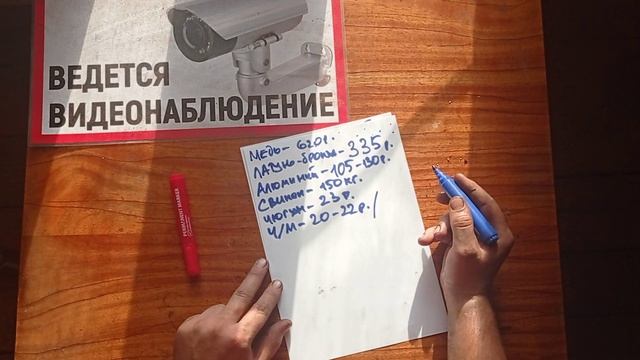 ВЕДЕТСЯ
ВИДЕОНАБЛЮДЕНИЕ
МЕДЬ- 620р.
ЛАТУНЬ-БРОНЗА-335р.
АЛЮМИНИЙ-105-130р.
СВИНЕЦ-150кг.
ЧУГУН-23р.
Ч/М-20-22р./
PERMANENT MARKER